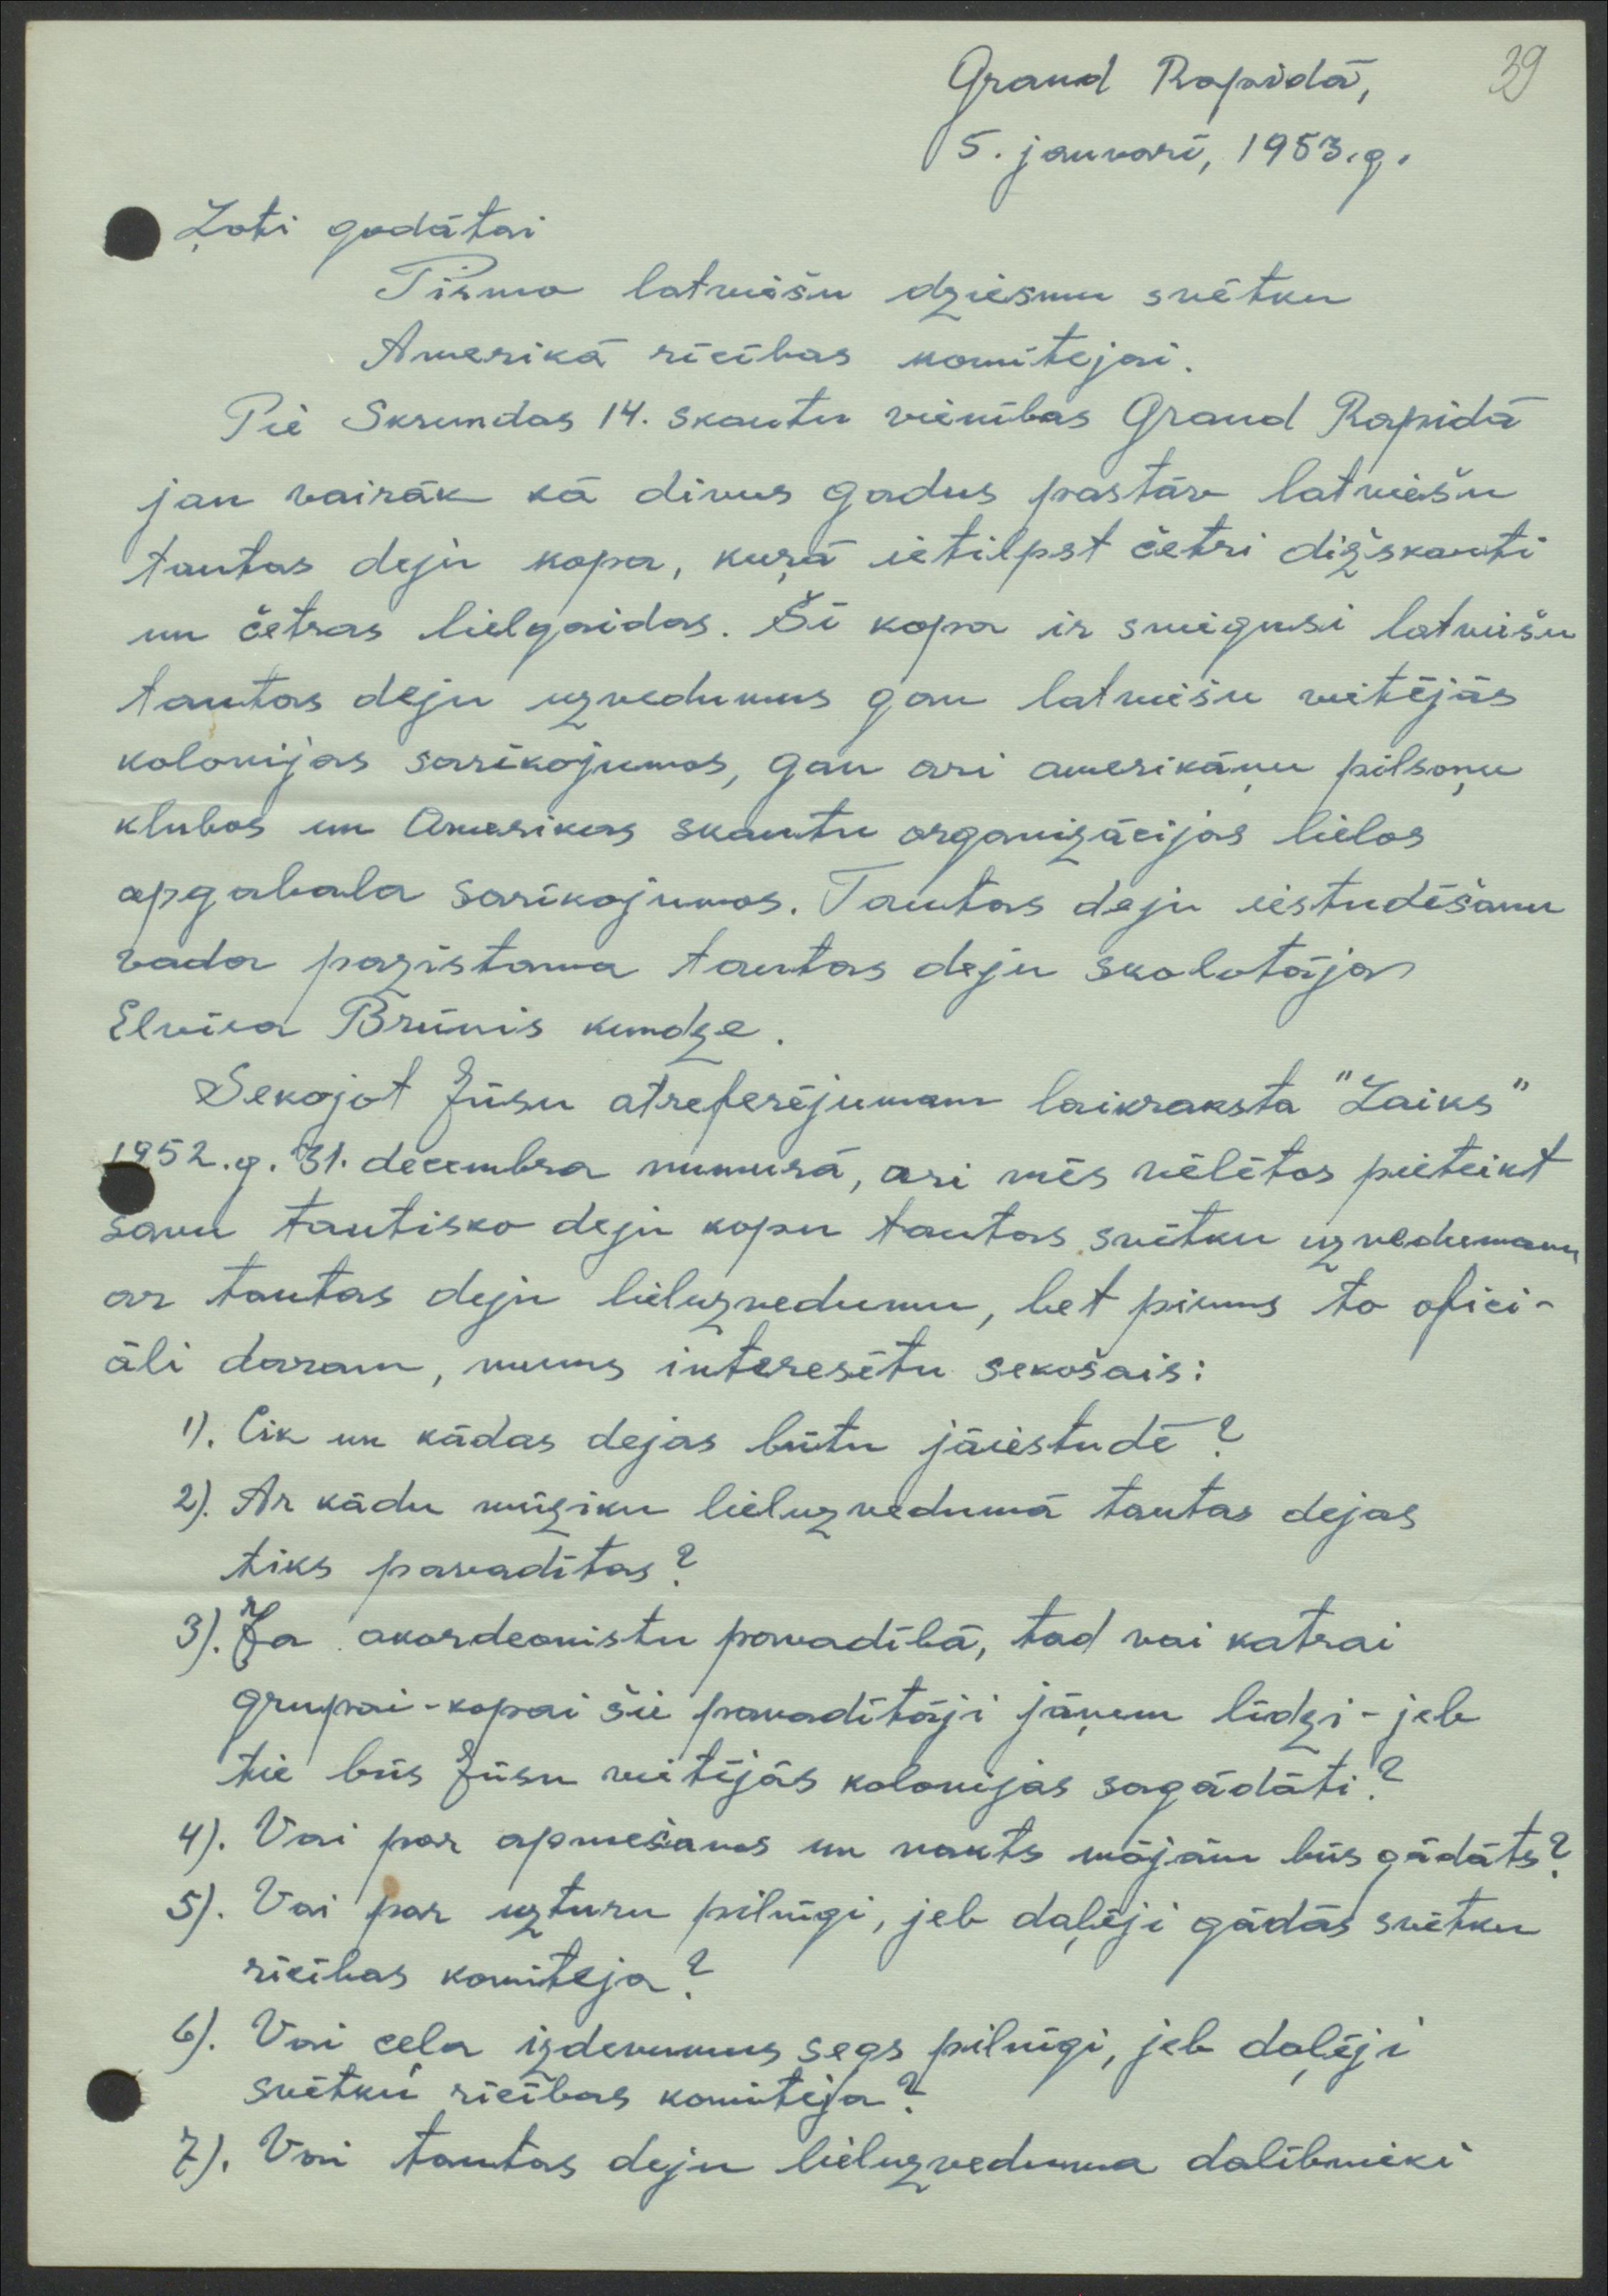 39
Grand Rapidā,
5. janvarī, 1953.g.
Ļoti godātai
Pirmo latviešu dziesmu svētku
Amerikā rīcības komitejai.
Pie Skrundas 14. skautu vienības Grand Rapidā
jau vairāk kā divus gadus pastāv latviešu
tautas deju kopa, kuŗā ietilpst četri dižskauti
un četras lielgaidas. Šī kopa ir sniegusi latviešu
tautas deju uzvedumus gan latviešu vietējās
kolonijas sarīkojumos, gan ari amerikāņu pilsoņu
klubos un Amerikas skautu organizācijas lielos
apgabala sarīkojumos. Tautas deju iestudēšanu
vada pazīstama tautas deju skolotāja
Elvīra Brūnis kundze.
Sekojot Jūsu atreferējumam laikraksta "Laiks"
1952.g. 31. decembra numurā, ari mēs vēlētos pieteikt
savu tautisko deju kopu tautas svētku uzvedumam
ar tautas deju lieluzvedumu, bet pirms to ofici-
āli daram, mums interesētu sekošais:
1). Cik un kādas dejas būtu jāiestudē?
2). Ar kādu mūziku lieluzvedumā tautas dejas
tiks pavadītas?
3). Ja akordeonistu pavadībā, tad vai katrai
grupai-kopai šie pavadītāji jāņem līdzi - jeb
tie būs Jūsu vietējās kolonijas sagādāti?
4). Vai par apmešanos un nakts mājām būs gādāts?
5). Vai par uzturu pilnīgi, jeb daļēji gādās svētku
rīcības komiteja?
6). Vai ceļa izdevumus segs pilnīgi, jeb daļēji
svētku rīcības komiteja?
7). Vai tautas deju lieluzveduma dalībnieki